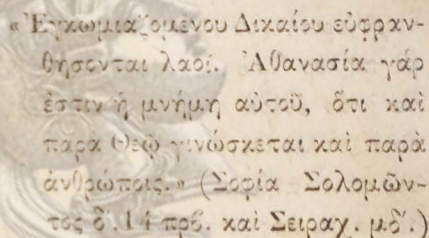 «Ἐγκωμιαζομένου Δικαίου εὐφραν-
θήσονται λαοί. Ἀθανασία γάρ
ἐστιν ἡ μνήμη αὐτοῦ, ὅτι καὶ
παρὰ Θεῷ γινώσκεται καὶ παρὰ
ἀνθρώποις.» (Σοφία Σολομῶν-
τος δ'.14 πρβ. καὶ Σειραχ. μδ'.)